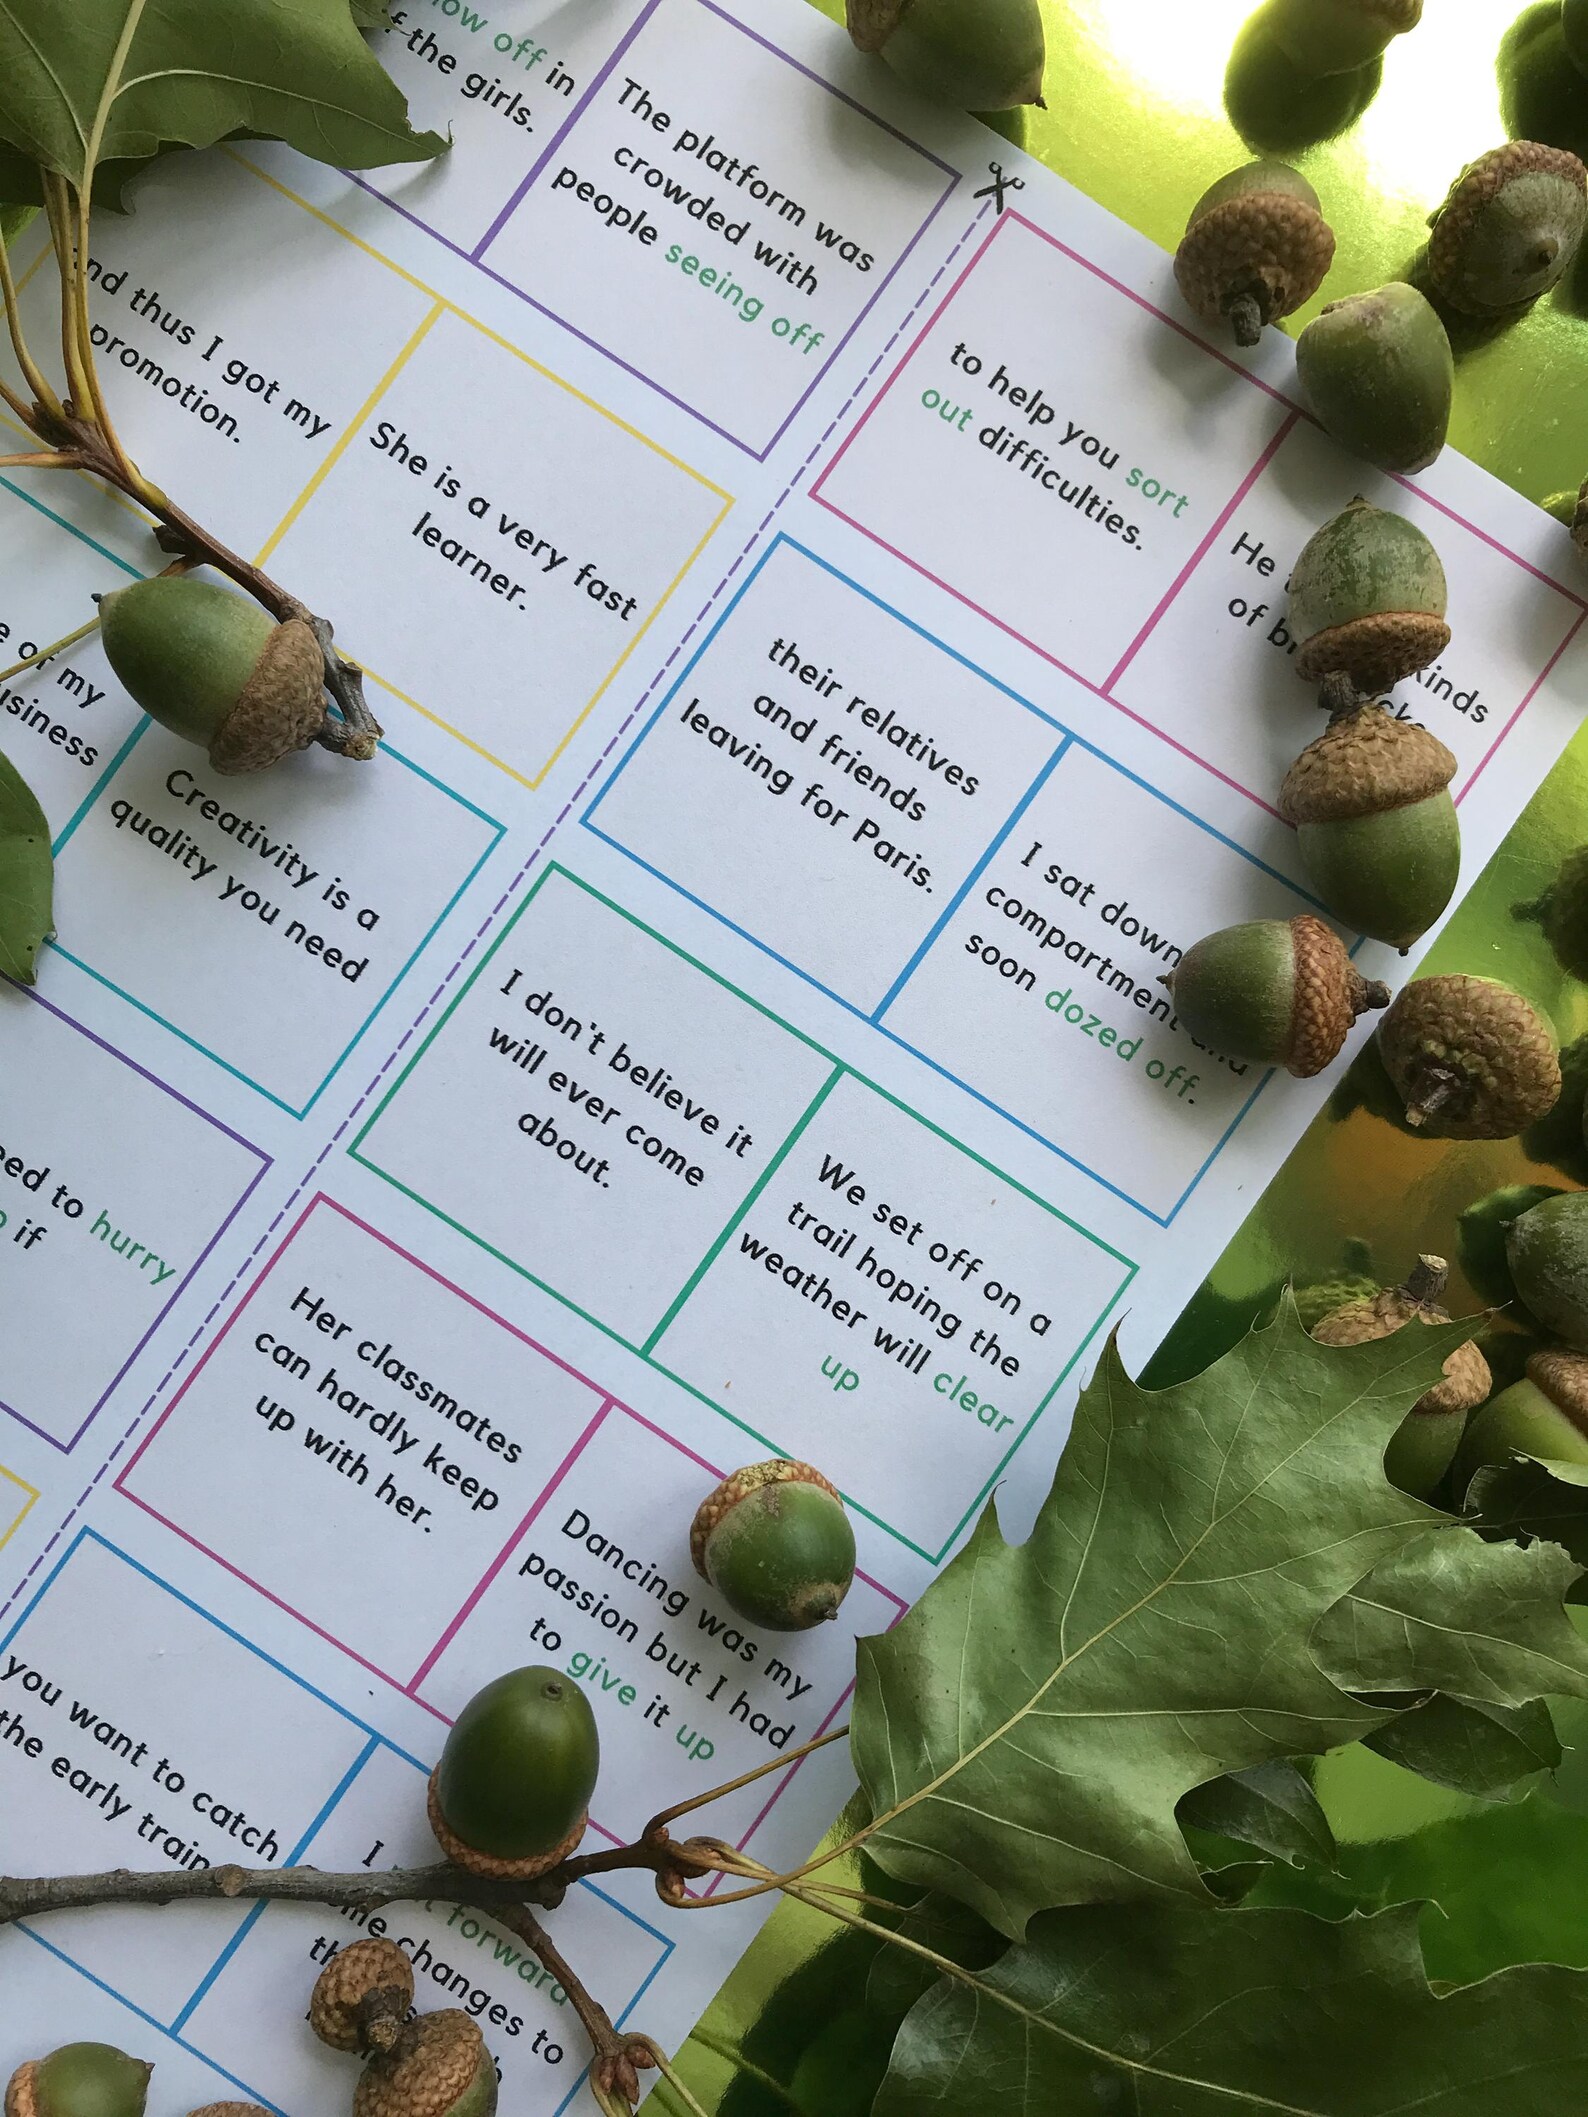 off in
the girls.
The platform was
crowded with
people seeing off
to help you sort
out difficulties.
He
of
kinds
thus I got my
promotion.
She is a very fast
learner.
their relatives
and friends
leaving for Paris.
I sat down
compartment
soon dozed off.
of my
Creativity is a
quality you need
I don't believe it
will ever come
about.
We set off on a
trail hoping the
weather will clear
up
to hurry
if
Her classmates
can hardly keep
up with her.
Dancing was my
passion but I had
to give it up
you want to catch
the early train
I
forward
changes to